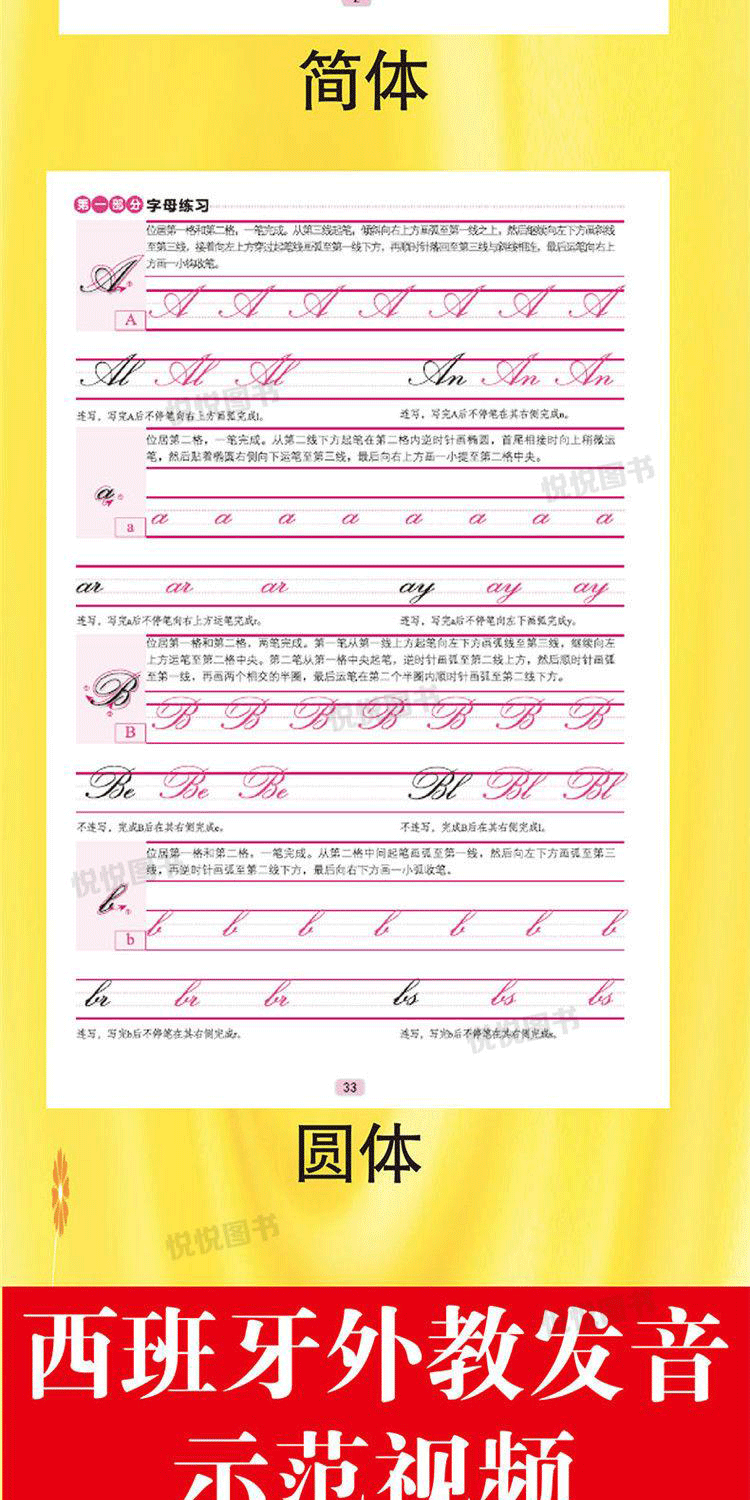 简体
第一部分 字母练习
位居第一格和第二格，一笔完成。从第三线起笔，倾斜向右上方画弧至第一线之上，然后继续向左下方画斜线
至第三线，接着向左上方穿过起笔线画弧至第一线下方，再顺时针落回至第三线与斜线相连，最后运笔向右上
方画一小钩收笔。
A
A A A A A A A
A
Al Al Al An An An
连写，写完A后不停笔向右上方画弧完成l。 连写，写完A后不停笔在其右侧完成n。
位居第二格，一笔完成。从第二线下方起笔在第二格内逆时针画椭圆，首尾相接时向上稍微运
笔，然后贴着椭圆右侧向下运笔至第三线，最后向右上方画一小提至第二格中央。
a
a a a a a a a a
a
ar ar ar ay ay ay
连写，写完a后不停笔向右上方运笔完成r。 连写，写完a后不停笔向左下画弧完成y。
位居第一格和第二格，两笔完成。第一笔从第一线上方起笔向左下方画弧线至第三线，继续向左
上方运笔至第二格中央。第二笔从第一格中央起笔，逆时针画弧至第二线上方，然后顺时针画弧
至第一线，再画两个相交的半圈，最后运笔在第二个半圈内顺时针画弧至第二线下方。
B
B B B B B B B
B
Be Be Be Bl Bl Bl
不连写，完成B后在其右侧完成e。 不连写，完成B后在其右侧完成l。
位居第一格和第二格，一笔完成。从第二格中间起笔画弧至第一线，然后向左下方画弧至第三
线，再逆时针画弧至第二线下方，最后向右下方画一小弧收笔。
b
b b b b b b b
b
br br br bs bs bs
连写，写完b后不停笔在其右侧完成r。 连写，写完b后不停笔在其右侧完成s。
33
圆体
悦悦图书
西班牙外教发音
示范视频